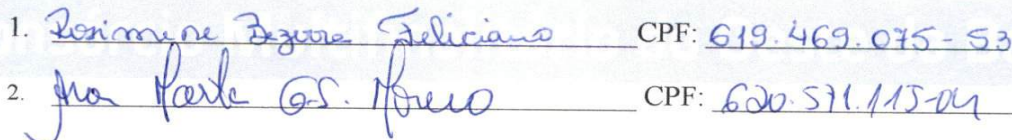 1. Rosimeire Bezerra Feliciano CPF: 619.469.075-53
2. Ana Marta G.S. Moreno CPF: 620.571.115-04